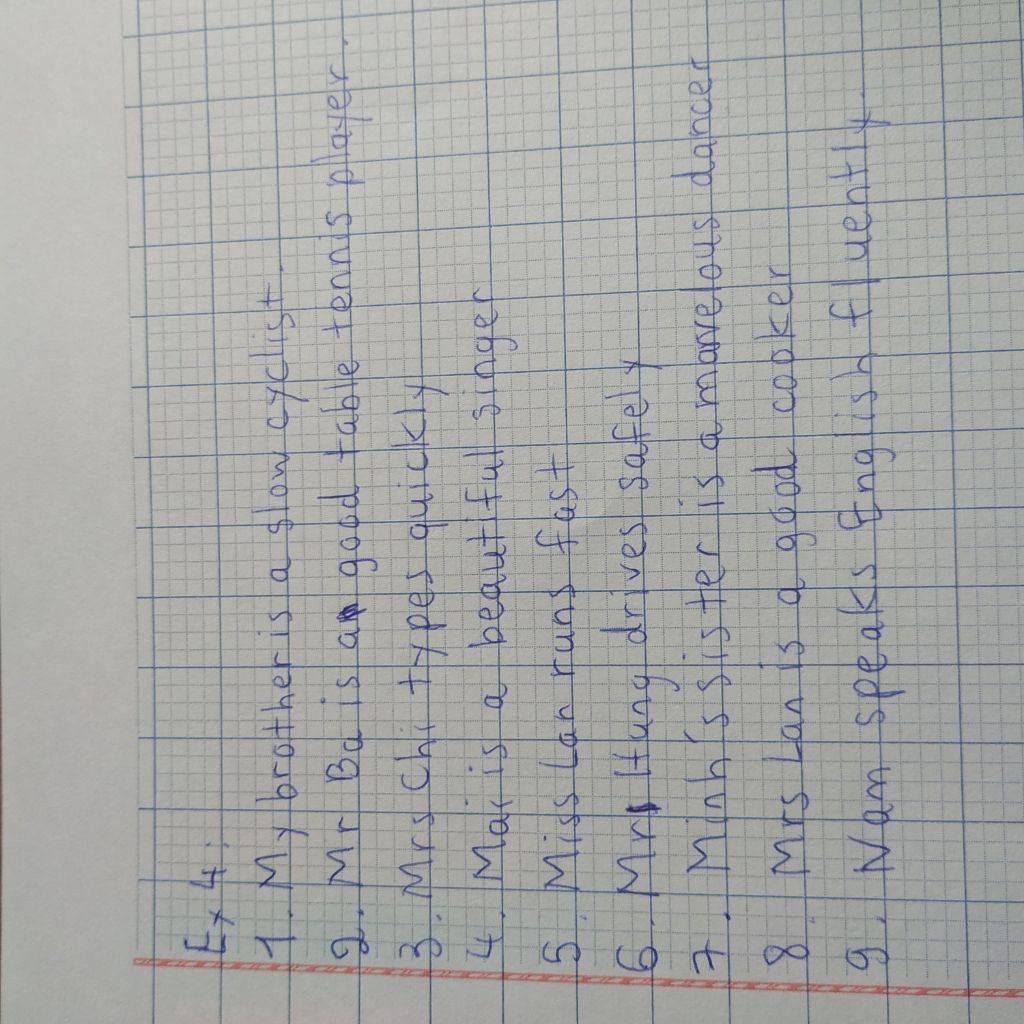 Ex 4:
1. My brother is a slow cyclist.
2. Mr Ba is a good table tennis player.
3. Mrs Chi types quickly
4. Mai is a beautiful singer
5. Miss Lan runs fast
6. Mr Hung drives safely
7. Minh's sister is a marvelous dancer
8. Mrs Lan is a good cooker
9. Nam speaks English fluently.